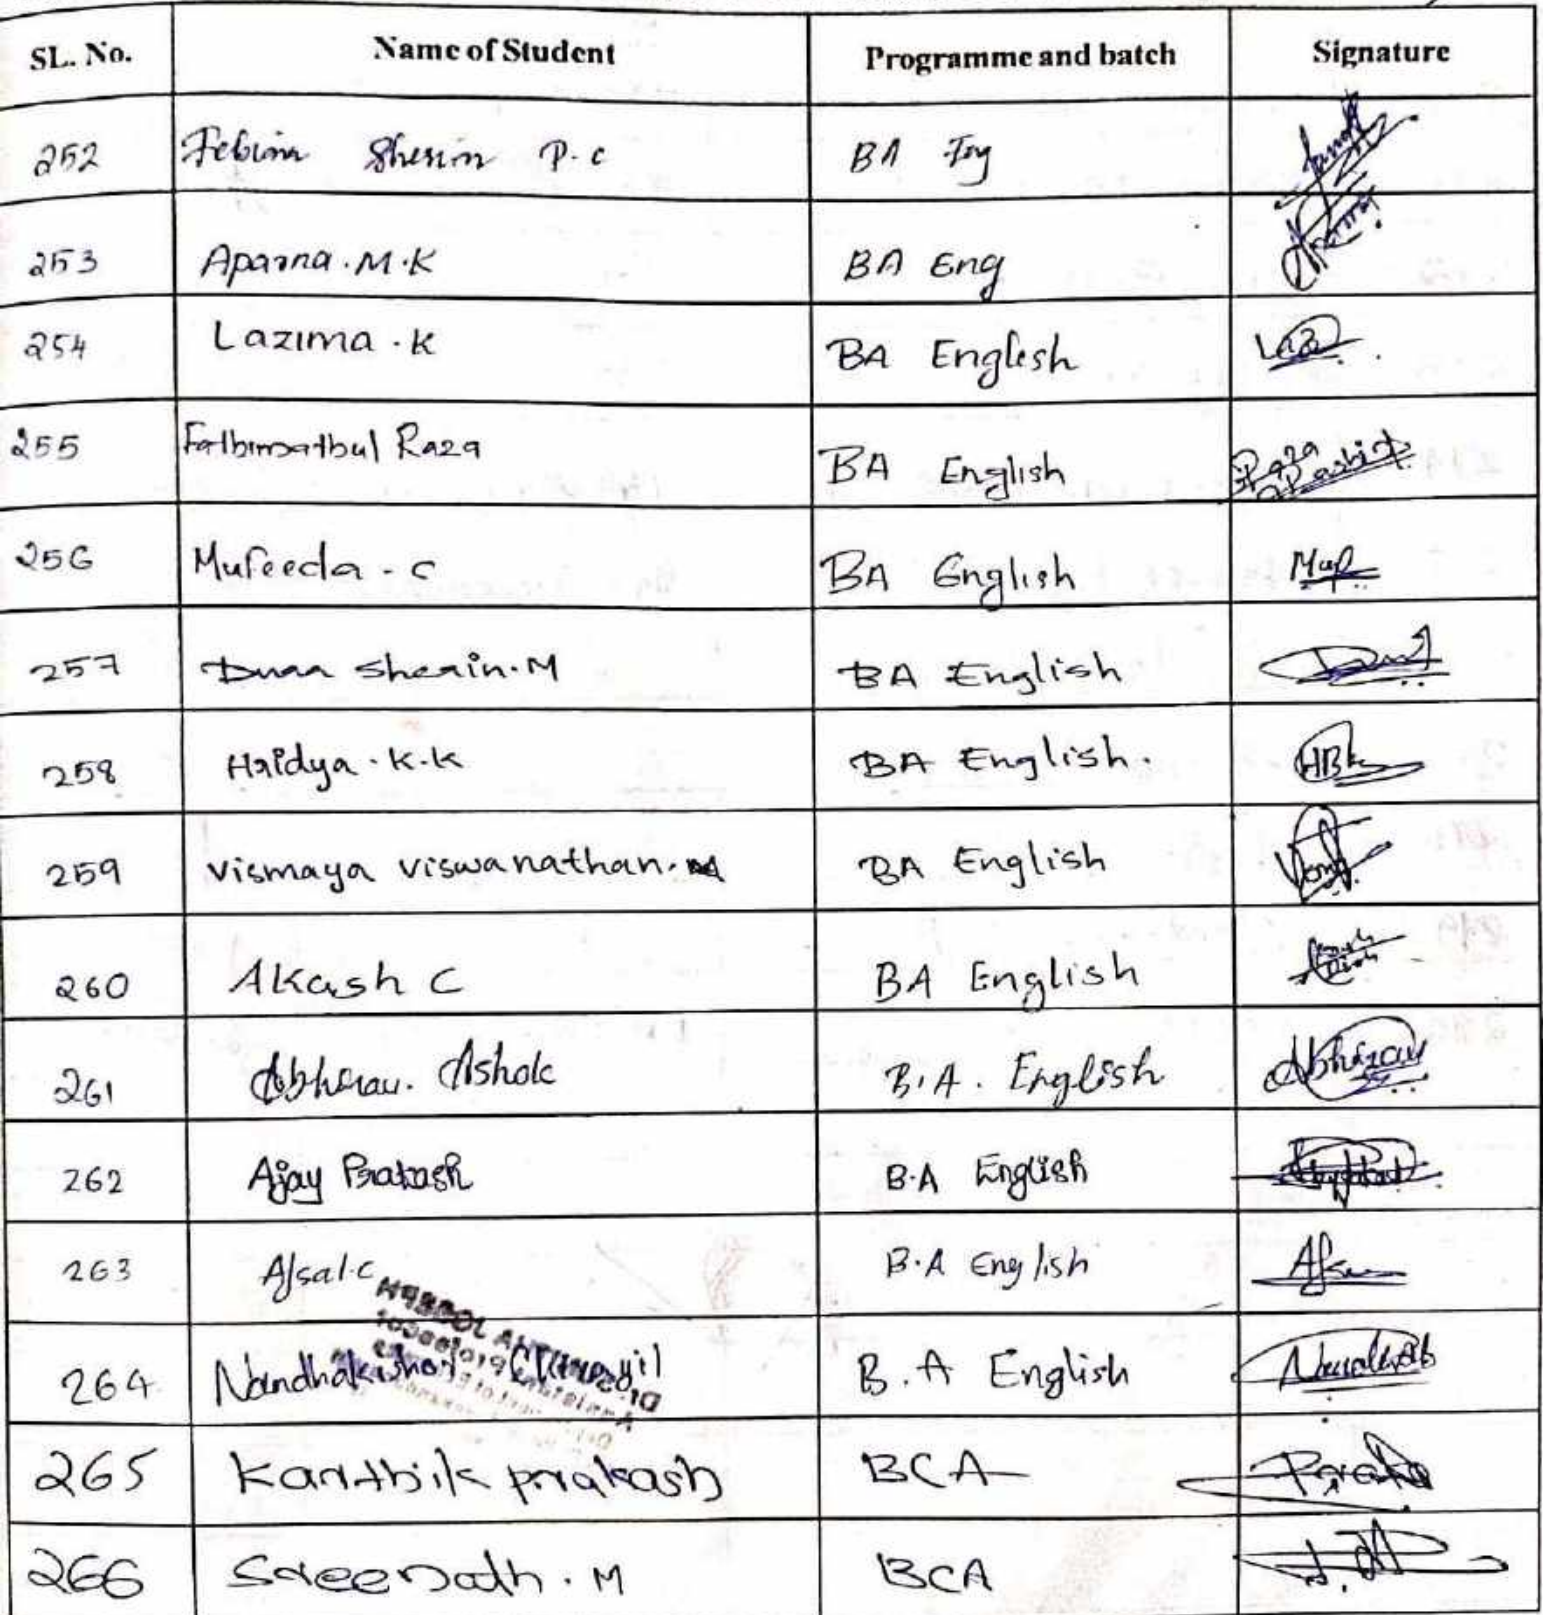 SL. No. Name of Student Programme and batch Signature
252 Febina Sherin P.c BA Eng
253 Aparna.M.K BA Eng
254 Lazima.K BA English
255 Fathimathul Raza BA English
256 Mufeeda.c BA English Muf
257 Duaa Sherin.M BA English
258 Hridya.K.K BA English.
259 Vismaya viswanathan.M BA English
260 Akash C BA English
261 Abhirav. Ashok B.A. English Abhirav
262 Ajay Prakash B.A English
263 Afsal.c B.A English
264 B.A English
265 Karthik prakash BCA
266 Sreenath.M BCA